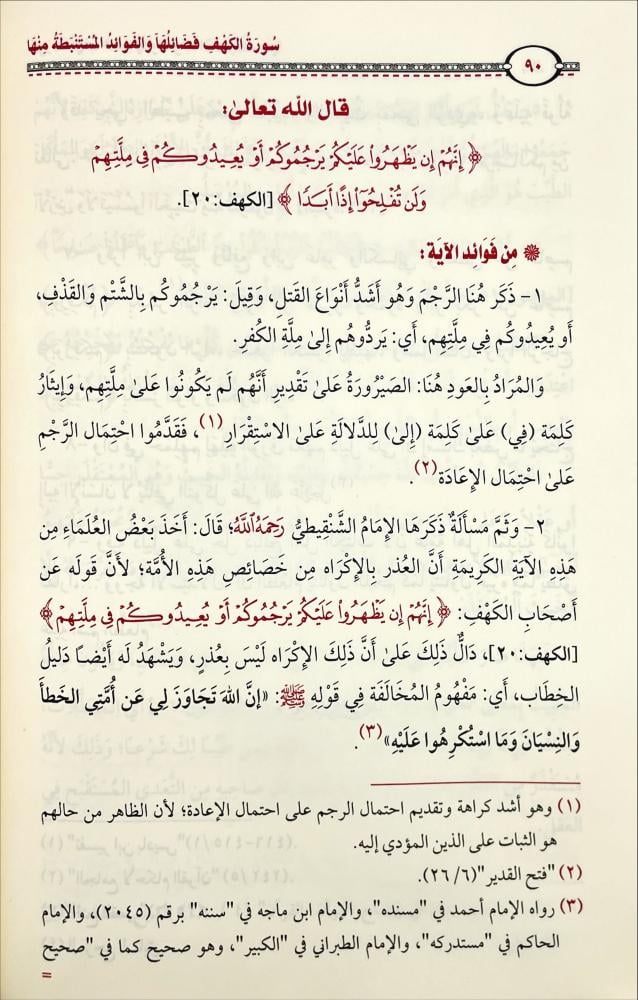 سُورَةُ الكَهْفِ فَضَائِلُهَا وَالفَوَائِدُ المُسْتَنْبَطَةُ مِنْهَا
٩٠
قال الله تعالىٰ:
﴿ إِنَّهُمْ إِن يَظْهَرُوا۟ عَلَيْكُمْ يَرْجُمُوكُمْ أَوْ يُعِيدُوكُمْ فِى مِلَّتِهِمْ
وَلَن تُفْلِحُوٓا۟ إِذًا أَبَدًا ﴾ [الكهف:٢٠].
❋ مِن فَوَائِدِ الآيَة:
١- ذَكَرَ هُنَا الرَّجْمَ وَهُوَ أَشَدُّ أَنْوَاعَ القَتلِ، وَقِيلَ: يَرْجُمُوكُم بِالشَّتْمِ وَالقَذْفِ،
أَو يُعِيدُوكُم فِي مِلَّتِهِم، أَي: يَردُّوهُم إِلىٰ مِلَّةِ الكُفرِ.
وَالمُرَادُ بِالعَودِ هُنَا: الصَّيْرُورَةُ عَلىٰ تَقْدِيرِ أَنَّهُم لَم يَكُونُوا عَلىٰ مِلَّتِهِم، وَإِيثَارُ
كَلِمَة (فِي) عَلىٰ كَلِمَة (إِلىٰ) لِلدَّلالَةِ عَلىٰ الاسْتِقْرَارِ(١)، فَقَدَّمُوا احْتِمَال الرَّجْمِ
عَلىٰ احْتِمَال الإِعَادَة(٢).
٢- وَثَمَّ مَسْأَلَةٌ ذَكَرَهَا الإِمَامُ الشَّنْقِيطيُّ رَحِمَهُ اللَّهُ؛ قَالَ: أَخَذَ بَعْضُ العُلَمَاءِ مِن
هَذِهِ الآيَةِ الكَرِيمَةِ أَنَّ العُذر بِالإِكْرَاه مِن خَصَائِصِ هَذِهِ الأُمَّةِ؛ لأَنَّ قَولَه عَن
أَصْحَابِ الكَهْفِ: ﴿ إِنَّهُمْ إِن يَظْهَرُوا۟ عَلَيْكُمْ يَرْجُمُوكُمْ أَوْ يُعِيدُوكُمْ فِى مِلَّتِهِمْ ﴾
[الكهف:٢٠]، دَالٌّ ذَلِكَ عَلىٰ أَنَّ ذَلِكَ الإِكْرَاه لَيْسَ بِعُذرٍ، وَيَشْهَدُ لَه أَيْضًا دَلِيلُ
الخِطَاب، أَي: مَفْهُومُ المُخَالَفَة فِي قَولِهِ ﷺ: «إِنَّ اللهَ تَجَاوَزَ لِي عَن أُمَّتِي الخَطَأَ
وَالنِسْيَانَ وَمَا اسْتُكْرِهُوا عَلَيْهِ»(٣).
(١) وهو أشد كراهة وتقديم احتمال الرجم على احتمال الإعادة؛ لأن الظاهر من حالهم
هو الثبات على الذين المؤدي إليه.
(٢) "فتح القدير"(٦/ ٢٦).
(٣) رواه الإمام أحمد في "مسنده"، والإمام ابن ماجه في "سننه" برقم (٢٠٤٥)، والإمام
الحاكم في "مستدركه"، والإمام الطبراني في "الكبير"، وهو صحيح كما في "صحيح
=